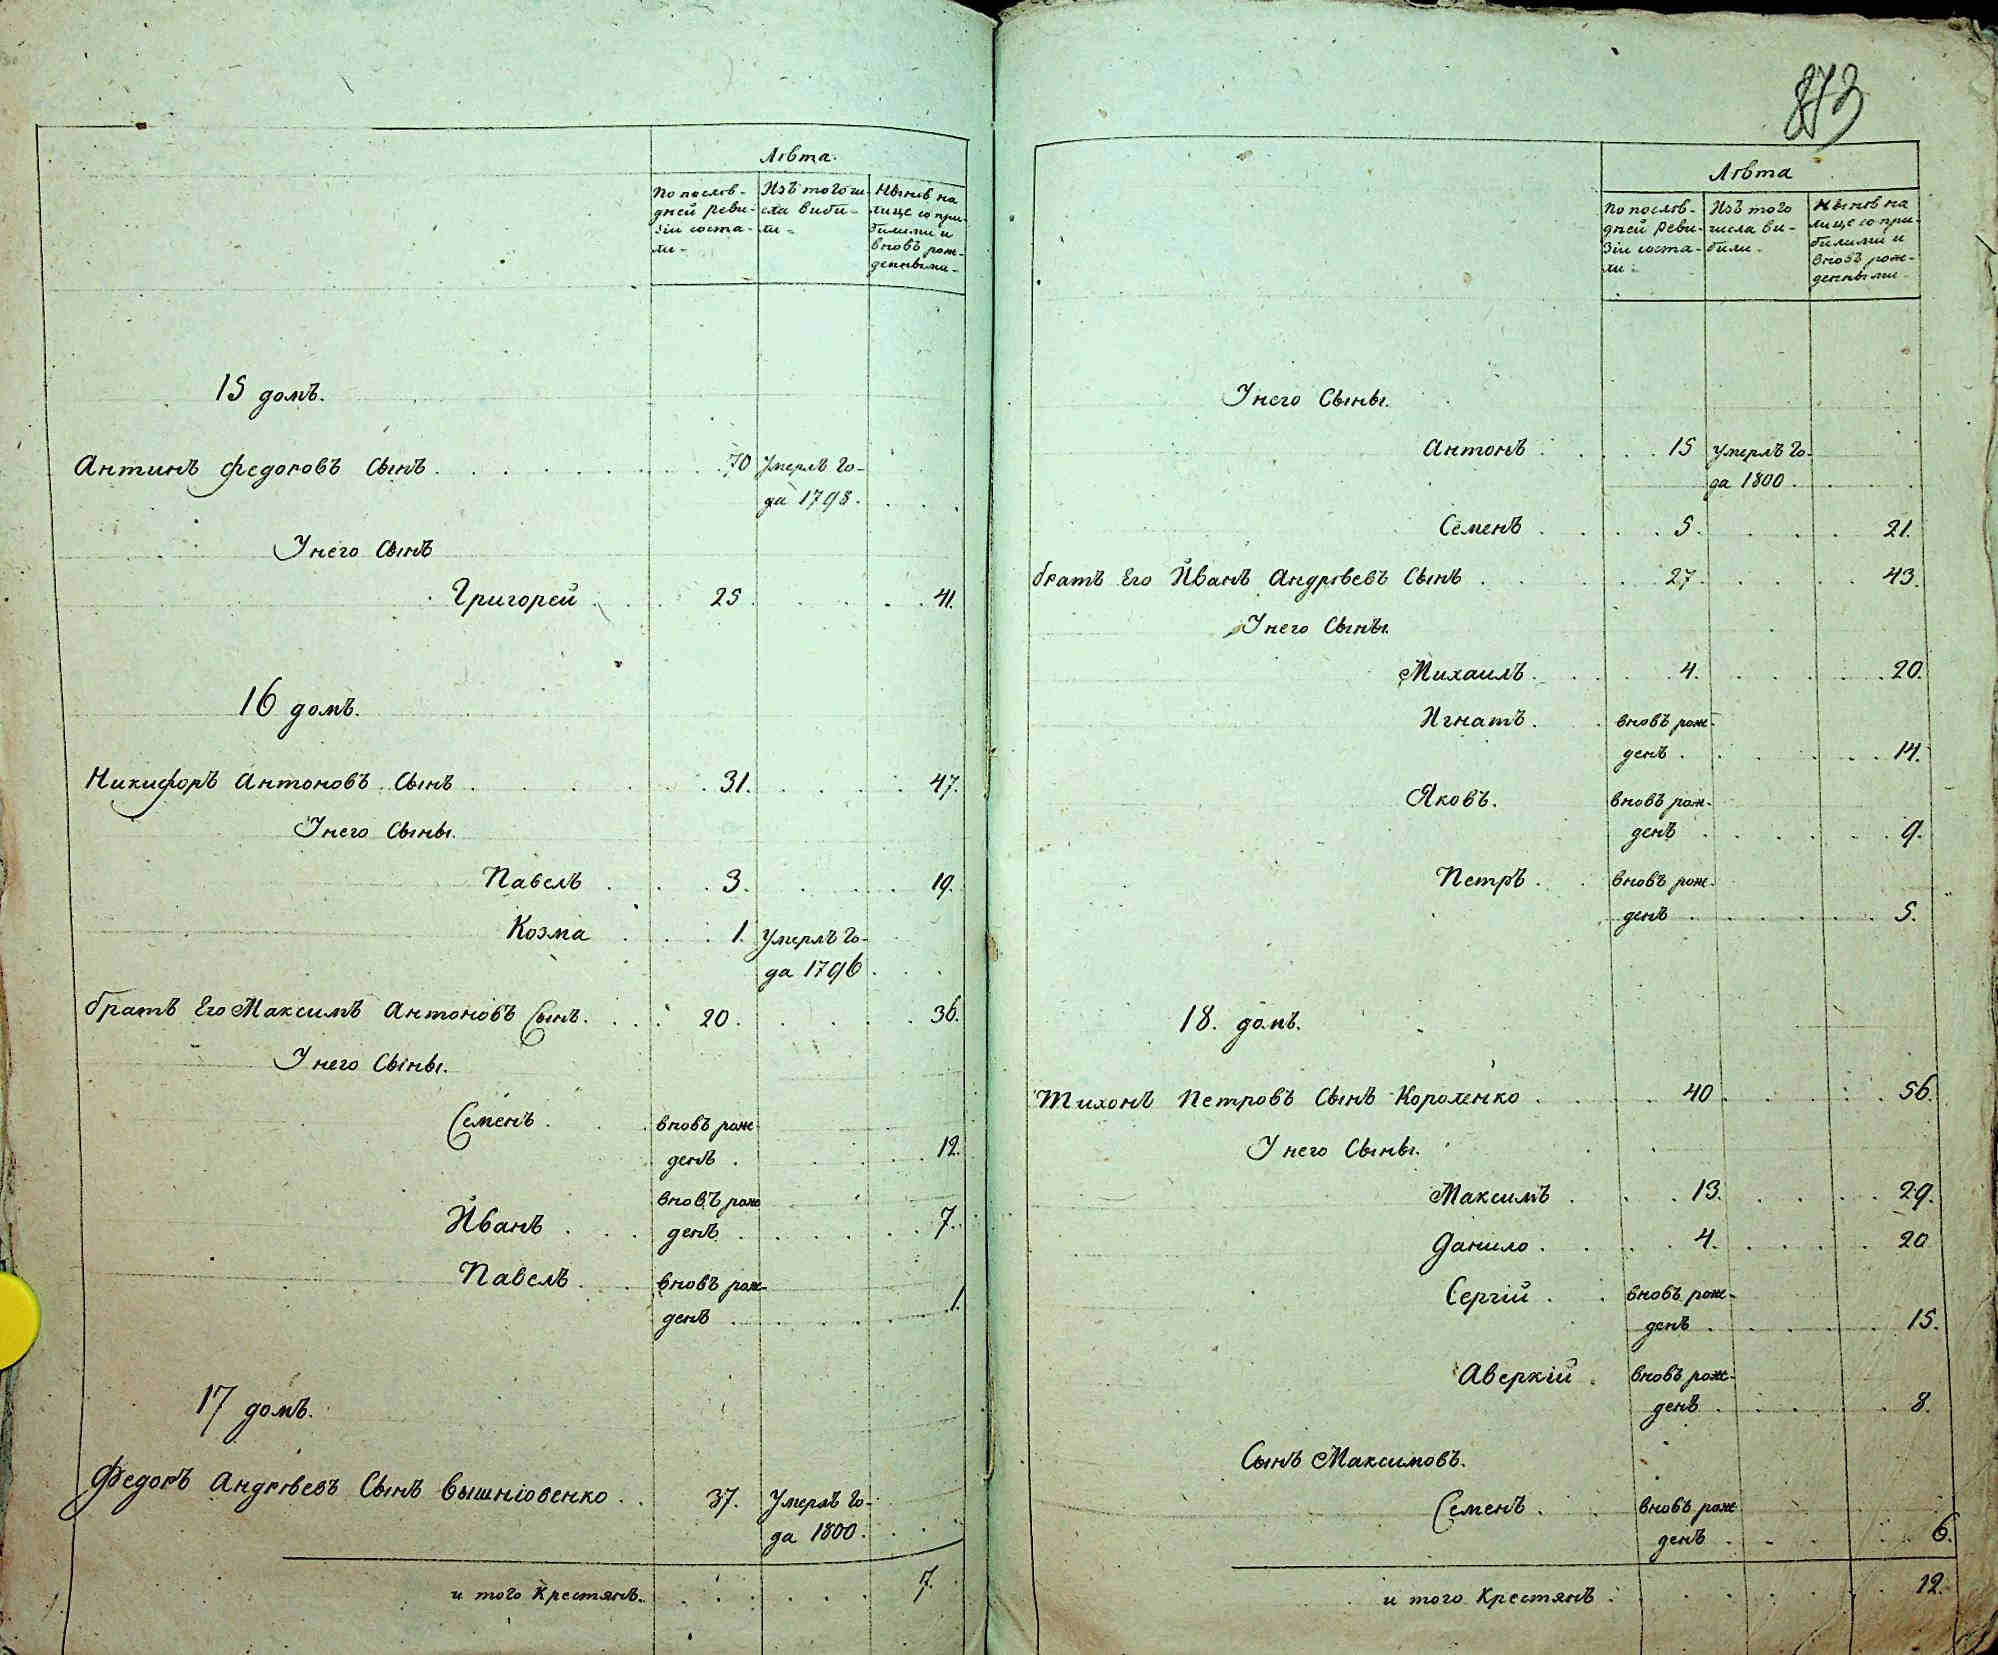 Лѣта.
По послѣ-
дней реви-
зіи соста-
ли-
Изъ того чи-
сла виби-
ли-
Нынѣ на
лице со при-
билими и
вновъ рож-
денными-
15 домъ.
Антинъ Федоровъ Сынъ 70 Умерлъ Го-
да 1798.
У него Сынъ
Григорей 25 41.
16 домъ.
Никифоръ Антоновъ Сынъ 31. 47.
У него Сыны.
Павелъ 3. 19.
Козма 1. Умерлъ Го-
да 1796
братъ Его Максимъ Антоновъ Сынъ. 20. 36.
У него Сыны.
Семенъ вновъ рож-
денъ 12.
Иванъ вновъ рож
денъ 7.
Павелъ вновъ рож-
денъ 1.
17 домъ.
Федоръ Андрѣевъ Сынъ Вышнѣовенко 37. Умерлъ Го-
да 1800.
и того Крестянъ. 7.
873
Лѣта
По послѣ-
дней Реви-
зіи соста-
ли.
Изъ того
числа ви-
били.
Нынѣ на
лице со при-
билими и
вновъ рож-
денными
У него Сыны.
Антонъ 15 Умерлъ Го-
да 1800.
Семенъ 5. 21.
братъ Его Иванъ Андрѣевъ Сынъ 27. 43.
У него Сыны.
Михаилъ 4. 20.
Игнатъ. вновъ рож-
денъ 14.
Яковъ. вновъ рож-
денъ 9.
Петръ вновъ рож-
денъ 5.
18. домъ.
Тихонъ Петровъ Сынъ Короленко 40 56.
У него Сыны.
Максимъ 13. 29.
Данило 4. 20
Сергій вновъ рож-
денъ 15.
Аверкій вновъ рож-
денъ 8.
Сынъ Максимовъ.
Семенъ вновъ рож
денъ 6.
и того Крестянъ 12.